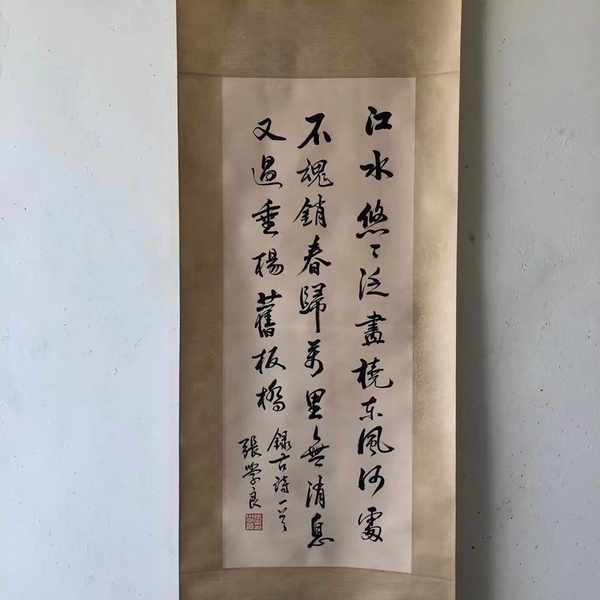 江水悠〻泛畫橈東風何處
不魂銷春歸萬里無消息
又過垂楊舊板橋
録古詩一首
張學良